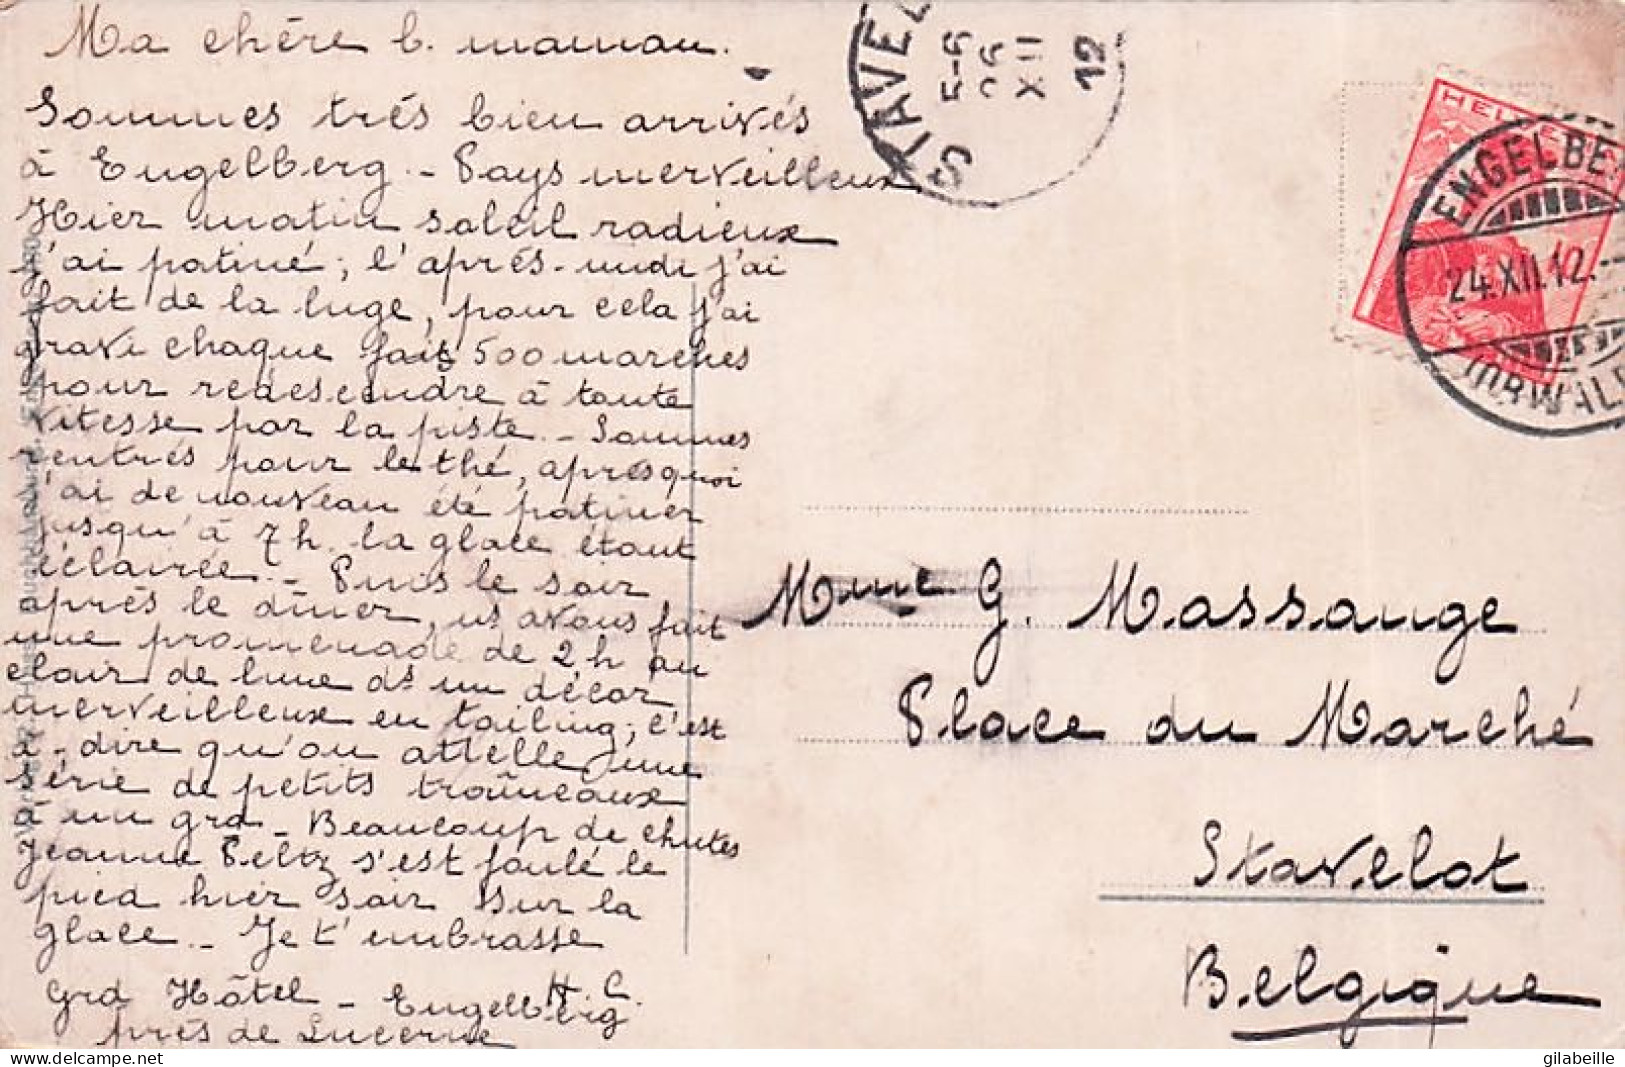 Ma chère b. maman.
Sommes trés bien arrivés
à Engelberg. - Pays merveilleux
Hier matin soleil radieux
j'ai patiné; l'après-midi j'ai
fait de la luge, pour cela j'ai
gravi chaque fois 500 marches
pour redescendre à toute
vitesse par la piste. - Sommes
rentrés pour le thé, aprés quoi
j'ai de nouveau été patiner
jusqu'à 7h. la glace étant
éclairée. - Puis le soir
aprés le diner, ns avons fait
une promenade de 2h au
clair de lune ds un décor
merveilleux en tailing; c'est
à-dire qu'on attelle une
série de petits traîneaux
à un grd - Beaucoup de chutes
Jeanne Peltz s'est foulé le
pied hier soir sur la
glace. - Je t'embrasse
H C.
Grd Hôtel - Engelberg
près de Lucerne
STAVEL
5-6
26
XII
12
HELVE
ENGELBE
24.XII.12.
Mme G. Massange
Place du Marché
Stavelot
Belgique
gilabeille